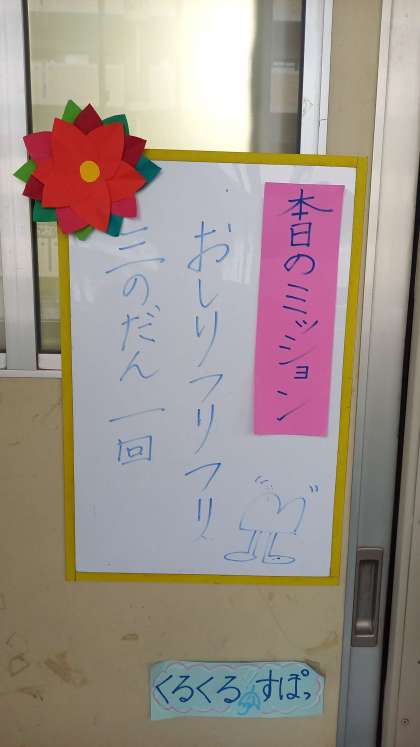 本日のミッション
おしりフリフリ
三のだん 一回
くるくる すぽっ